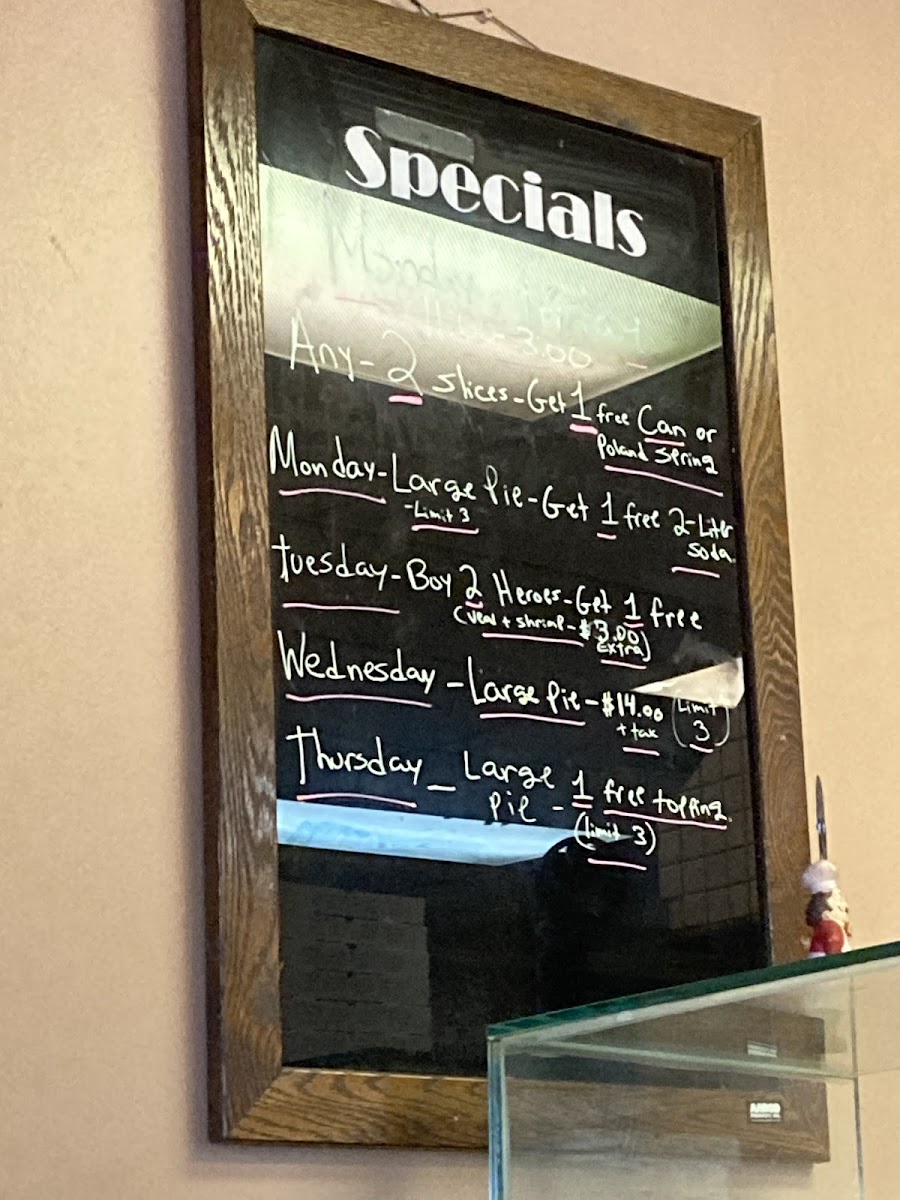 Specials
Any-2 slices-Get 1 free Can or
Poland Spring
Monday-Large Pie-Get 1 free 2-Liter
-Limit 3
soda.
Tuesday-Boy 2 Heroes-Get 1 free
(veal + shrimp-$3.00
Extra)
Wednesday-Large Pie-$14.00 (Limit
+ tax 3)
Thursday-Large
Pie - 1 free topping.
(limit 3)